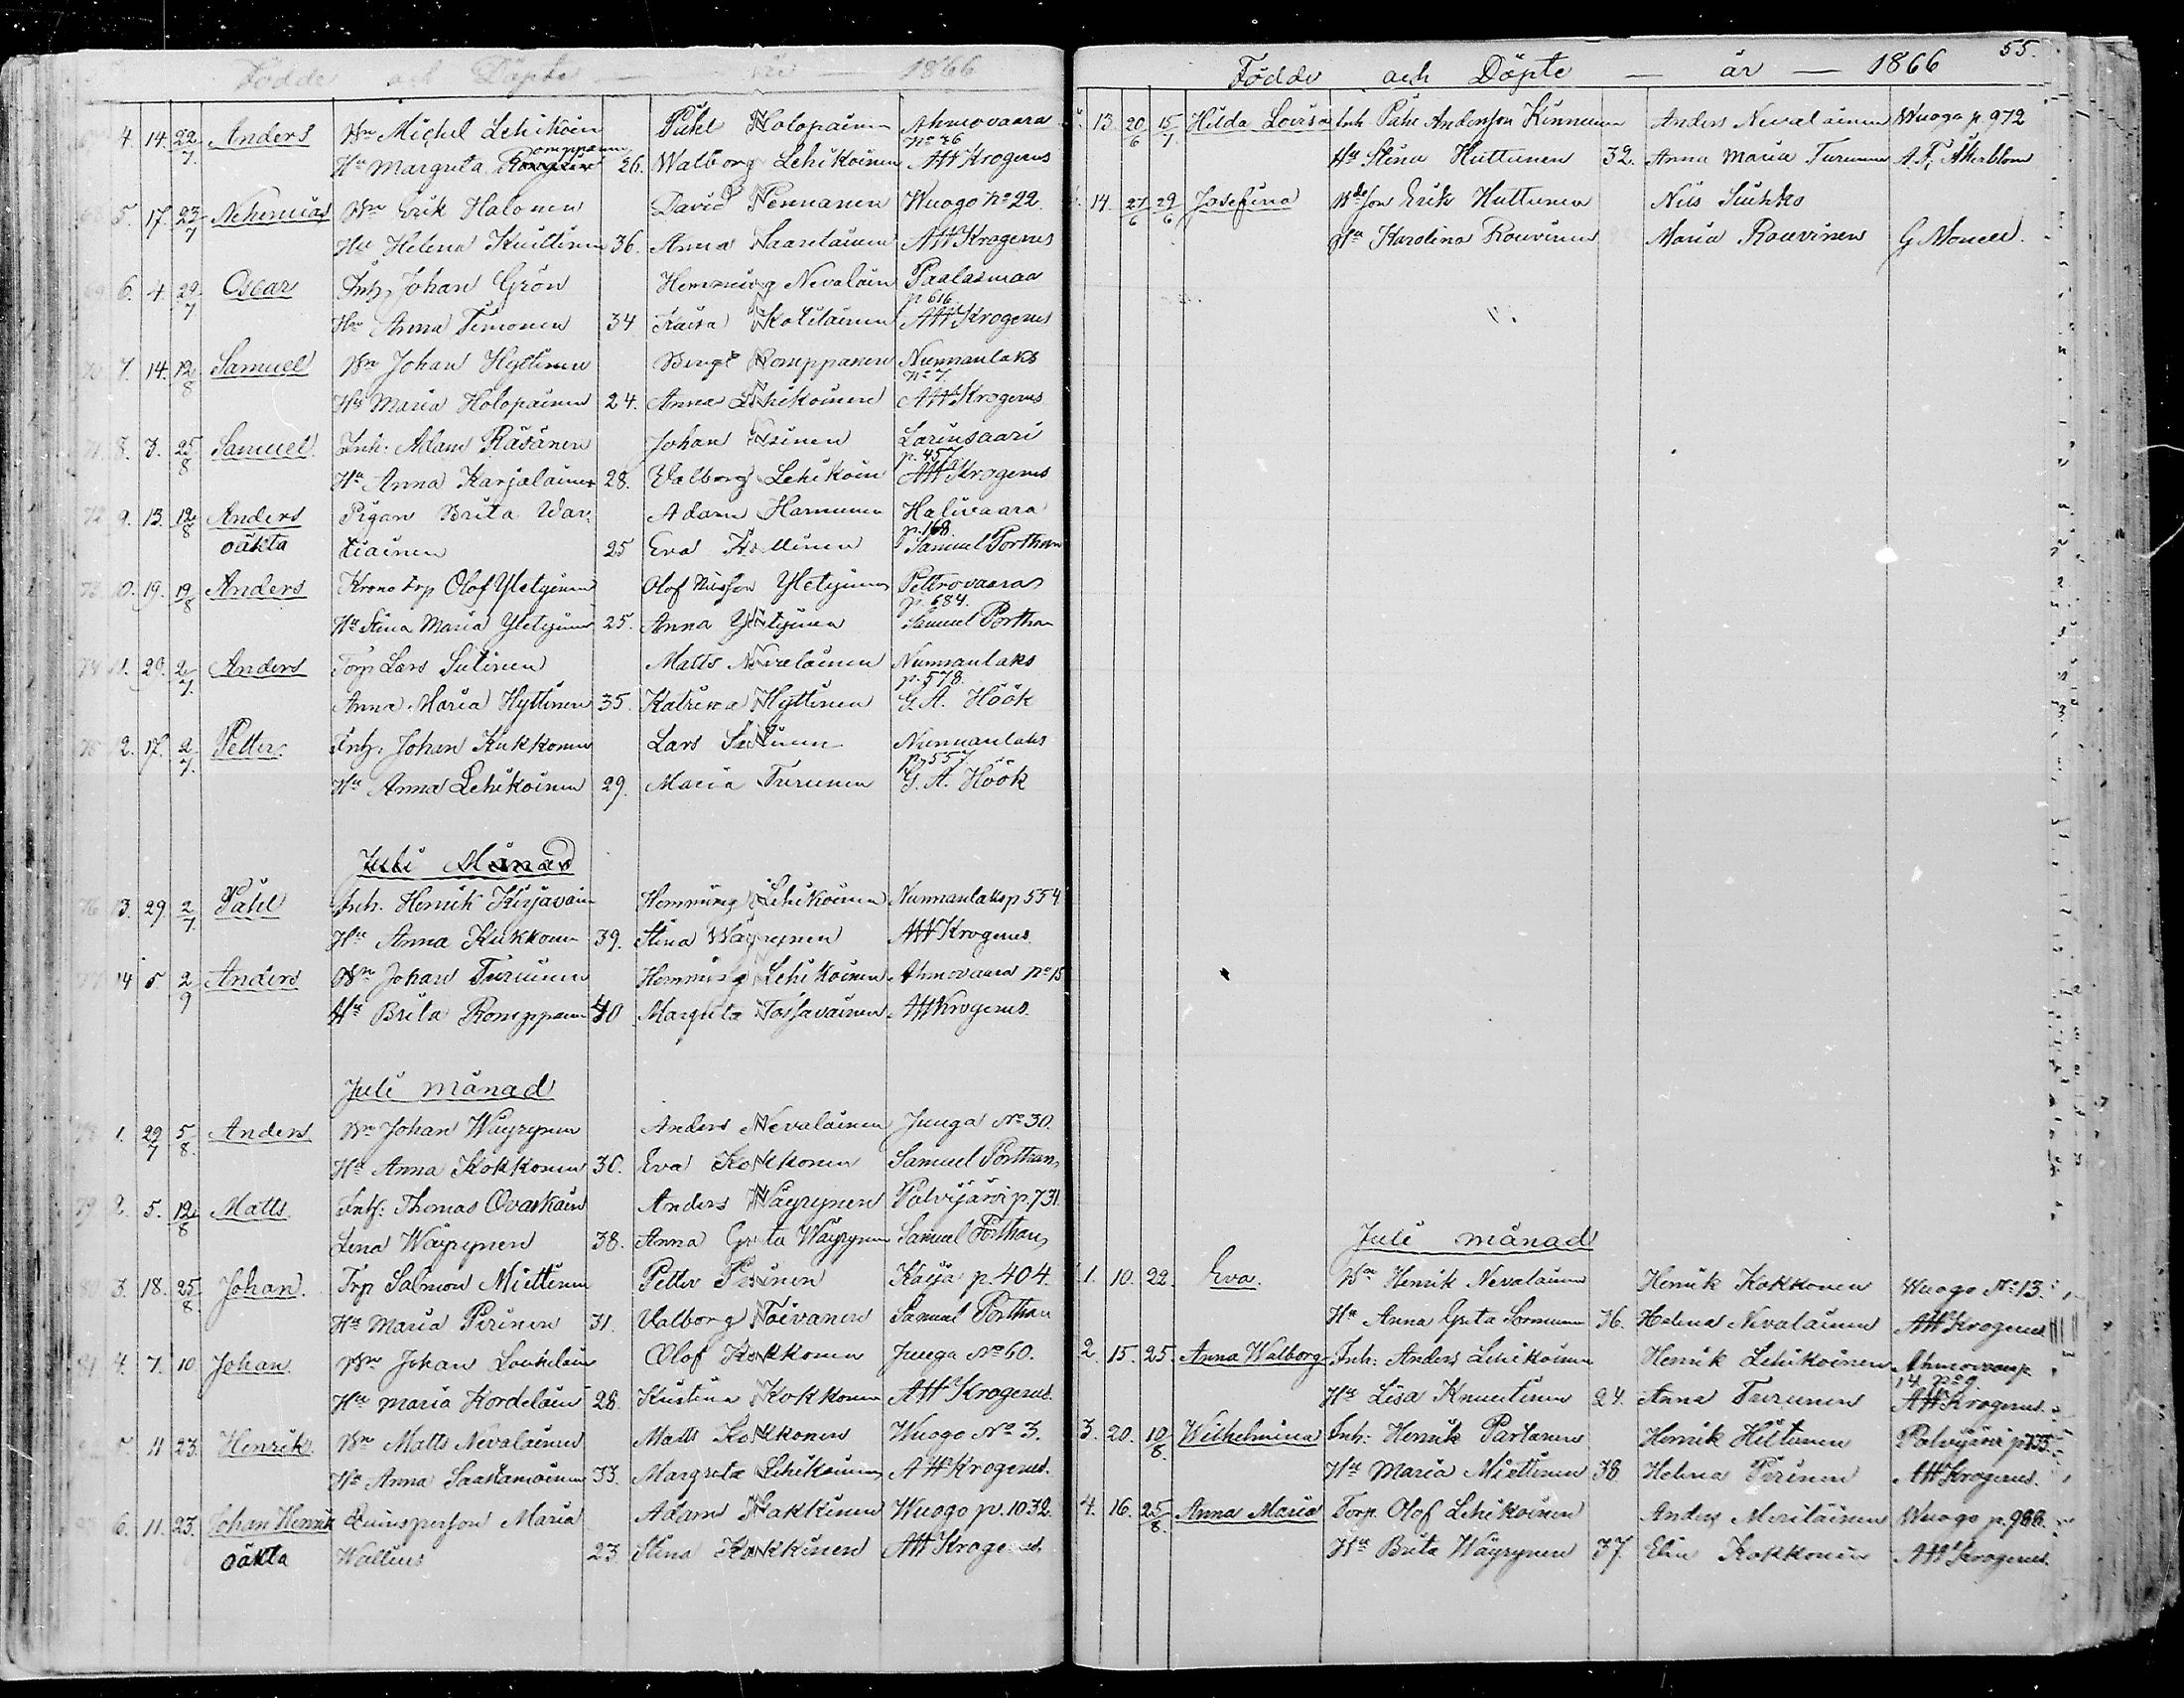 Födde och Döpte — år — 1866
4. 14. 22/7 Anders Bn Michel Lehikoin Påhl Holopainen Ahmovaara
No 36
Hu Margreta Romppanen 26. Walborg Lehikoinen AWKrogerus
5. 17. 23/7 Nehemias Bn Erik Halonen David Pennanen Wuogo No 22.
Hu Helena Kuittinen 36. Anna Saarelainen AWKrogerus
6. 4. 29/7 Oscar Inh. Johan Grön Hemming Nevalain Paalasmaa
p 616.
Hu Anna Timonen 34 Kaisa Kokilainen AWKrogerus
7. 14. 12/8 Samuel Bn Johan Hyttinen Bengt Romppanen Nunnanlaks
No 7.
Hu Maria Holopainen 24. Anna Lehikoinen AWKrogerus
8. 3. 25/8 Samuel. Inh. Adam Räsänen Johan Larinsaari
p. 457
Hu Anna Karjalainen 28. Valborg Lehikoin AWKrogerus
72 9. 13. 12/8 Anders Pigan Brita War- Adam Harinen Halivaara
p. 168.
oäkta tiainen 25 Eva Samuel Porthan
73 10. 19. 19/8 Anders Krono trp Olof Yletyinen Olof Nilsson Yletyinen Petrovaara
p. 684.
Hu Stina Maria Yletyinen 25. Anna Yletyinen Samuel Porthan
74 11. 29. 2/7. Anders Torp Lars Sutinen Matts Nevalainen Nunnanlaks
p. 578.
Anna Maria Hyttinen 35. Katrina Hyttinen G. A. Höök
75 12. 17. 2/7. Petter. Inh. Johan Kukkonen Lars Sutinen Nunnanlaks
p 557.
Hu Anna Lehikoinen 29. Maria Turunen G. A. Höök
Juli Månad
76 13. 29. 2/7. Påhl Inh. Henrik Kirjavain Hemming Lehikoinen Nunnanlaks p 554
Hu Anna Kukkonen 39. Stina Wäyrynen AWKrogerus.
77 14 5. 2/9 Anders Bn Johan Turunen Hemming Lehikoinen Ahmovaara No 15
Hu Brita Romppanen 40 Margreta Tossavainen AWKrogerus.
Juli månad
78 1. 29/7 5/8. Anders Bn Johan Wäyrynen Anders Nevalainen Juuga No 30.
Hu Anna Kokkonen 30. Eva Kokkonen Samuel Porthan
79 2. 5. 12/8 Matts. Inh: Thomas Ovaskain Anders Wäyrynen Polvijärvi p. 731.
Lena Wäyrynen 38. Anna Greta Wäyrynen Samuel Porthan
80 3. 18. 25/8. Johan. Trp Salmon Miettinen Petter Pirinen Kajja p. 404.
Hu Maria Pirinen 31. Valborg Toivanen Samuel Porthan
81 4. 7. 10 Johan. Bn Johan Loukelain Olof Kokkonen Juuga No 60.
Hu Maria Kordelain 28. Kristina Kokkonen AWKrogerus.
5. 11 23. Henrik. Bn Matts Nevalainen Matts Kokkonen Wuogo No 3.
Hu Anna Saastamoinen 33. Margreta Lehikoinen AWKrogerus.
6. 11. 23. Johan Henrik Quinsperson Maria Adam Wuogo p. 1032.
oäkta Wallius 23. Stina AWKrogerus
55.
Födde och Döpte — år — 1866
13. 20/6 15/7 Hilda Lovisa Inh. Påhl Andersson Kinnunen Anders Nevalainen Wuogo p. 972
Hu Stina Huttunen 32. Anna Maria Turunen A. F. Åkerblom
14. 27/6 29/6 Josefina Bdeson Erik Huttunen Nils Siuhko
Hu Karolina Rouvinen Maria Rouvinen G Monell.
Juli månad
1. 10. 22. Eva. Bn Henrik Nevalainen Henrik Kokkonen Wuogo No 13.
Hu Anna Greta Sormunen 36. Helena Nevalainen AWKrogerus
2. 15. 25. Anna Walborg Inh: Anders Lehikoinen Henrik Lehikoinen Ahmovaara p.
14 No 9
Hu Lisa Knuutinen 24. Anna Turunen AWKrogerus.
3. 20. 10/8. Wilhelmina Inh: Henrik Partanen Henrik Hiltunen Polvijärvi p
Hu Maria Miettinen 38 Helena Pirinen AWKrogerus.
4. 16. 25/8. Anna Maria Torp. Olof Lehikoinen Anders Meriläinen Wuogo p. 988.
Hu Brita Wäyrynen 37. Elin Kokkonen AWKrogerus.